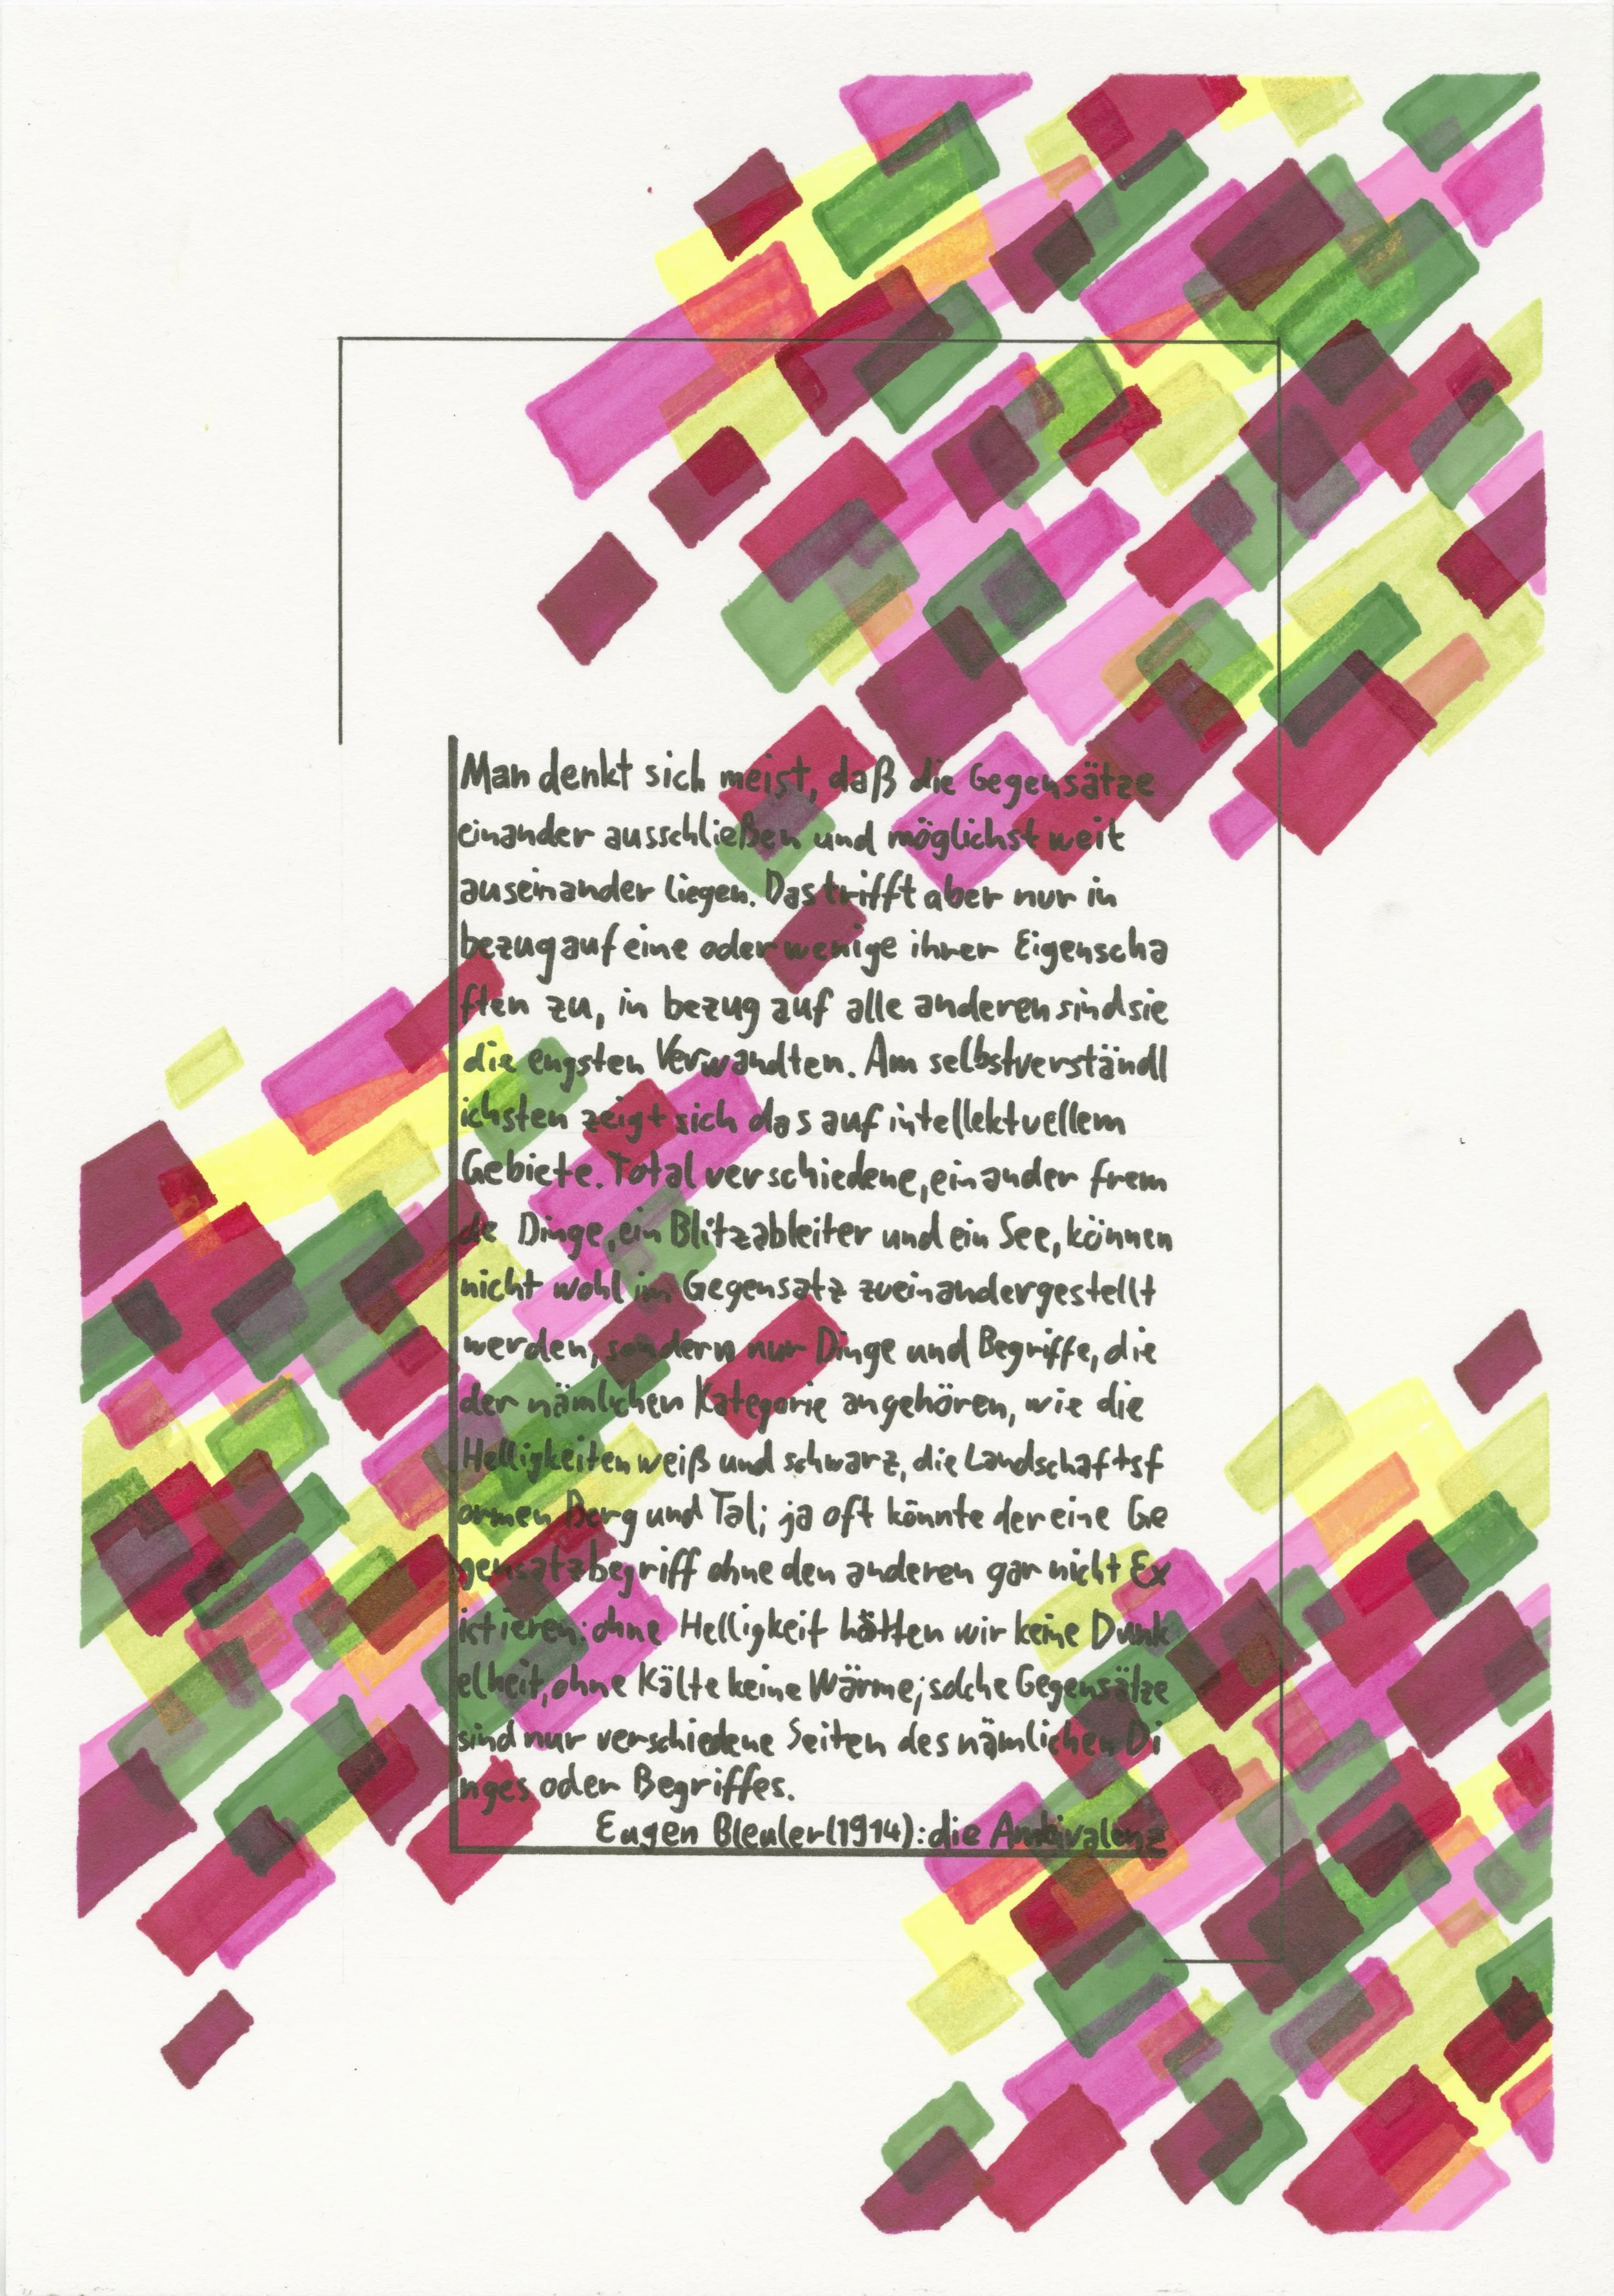 Man denkt sich meist, daß die Gegensätze
einander ausschließen und möglichst weit
auseinander liegen. Das trifft aber nur in
bezug auf eine oder wenige ihrer Eigenscha
ften zu, in bezug auf alle anderen sind sie
die engsten Verwandten. Am selbstverständl
ichsten zeigt sich das auf intellektuellem
Gebiete. Total verschiedene, einander frem
de Dinge, ein Blitzableiter und ein See, können
nicht wohl im Gegensatz zueinandergestellt
werden, sondern nur Dinge und Begriffe, die
der nämlichen Kategorie angehören, wie die
Helligkeiten weiß und schwarz, die Landschaftsf
ormen Berg und Tal; ja oft könnte der eine Ge
gensatzbegriff ohne den anderen gar nicht Ex
istieren: ohne Helligkeit hätten wir keine Dunk
elheit, ohne Kälte keine Wärme; solche Gegensätze
sind nur verschiedene Seiten des nämlichen Di
nges oder Begriffes.
Eugen Bleuler (1914): die Ambivalenz